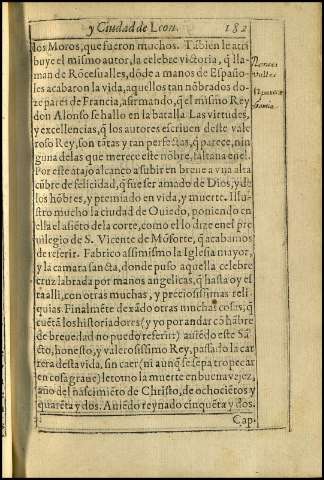 y Ciudad de Leon. 182
los Moros, que fueron muchos. Tābien le atri
buye el mismo autor, la celebre victoria, q̃ lla-
man de Rōcesualles, dōde a manos de Españo-
les acabaron la vida, aquellos tan nōbrados do-
ze pares de Francia, afirmando, q̃ el mismo Rey
don Alonso se hallo en la batalla. Las virtudes,
y excellencias, q̃ los autores escriuen deste vale
roso Rey, son tātas y tan perfectas, q̃ parece, nin
guna de las que merece este nōbre, faltana enel.
Por este atajo alcanco a subir en breue a vna alta
cūbre de felicidad, q̃ fue ser amado de Dios, y de
los hōbres, y premiado en vida, y muerte. Illu-
stro mucho la ciudad de Ouiedo, poniendo en
ella el asiēto de la corte, como el lo dize enel pri
uilegio de S. Vicente de Mōforte, q̃ acabamos
de referir. Fabrico assimismo la Iglesia mayor,
y la camara sancta, donde puso aquella celebre
cruz labrada por manos angelicas, q̃ hasta oy es
ta alli, con otras muchas, y preciosissimas reli-
quias. Finalmēte dexādo otras muchas cosas, q̃
cuētā los historiadores (y yo por andar cō hābre
de breuedad no puedo referir) auiēdo este Sā-
cto, honesto, y valerosissimo Rey, passado la car
rera desta vida, sin caer (ni aunq̃ se sepa tropecar
en cosa graue) le tomo la muerte en buena vejez,
año del nascimiēto de Christo, de ochociētos y
quarēta y dos. Auiēdo reynado cinquēta y dos.
Cap.